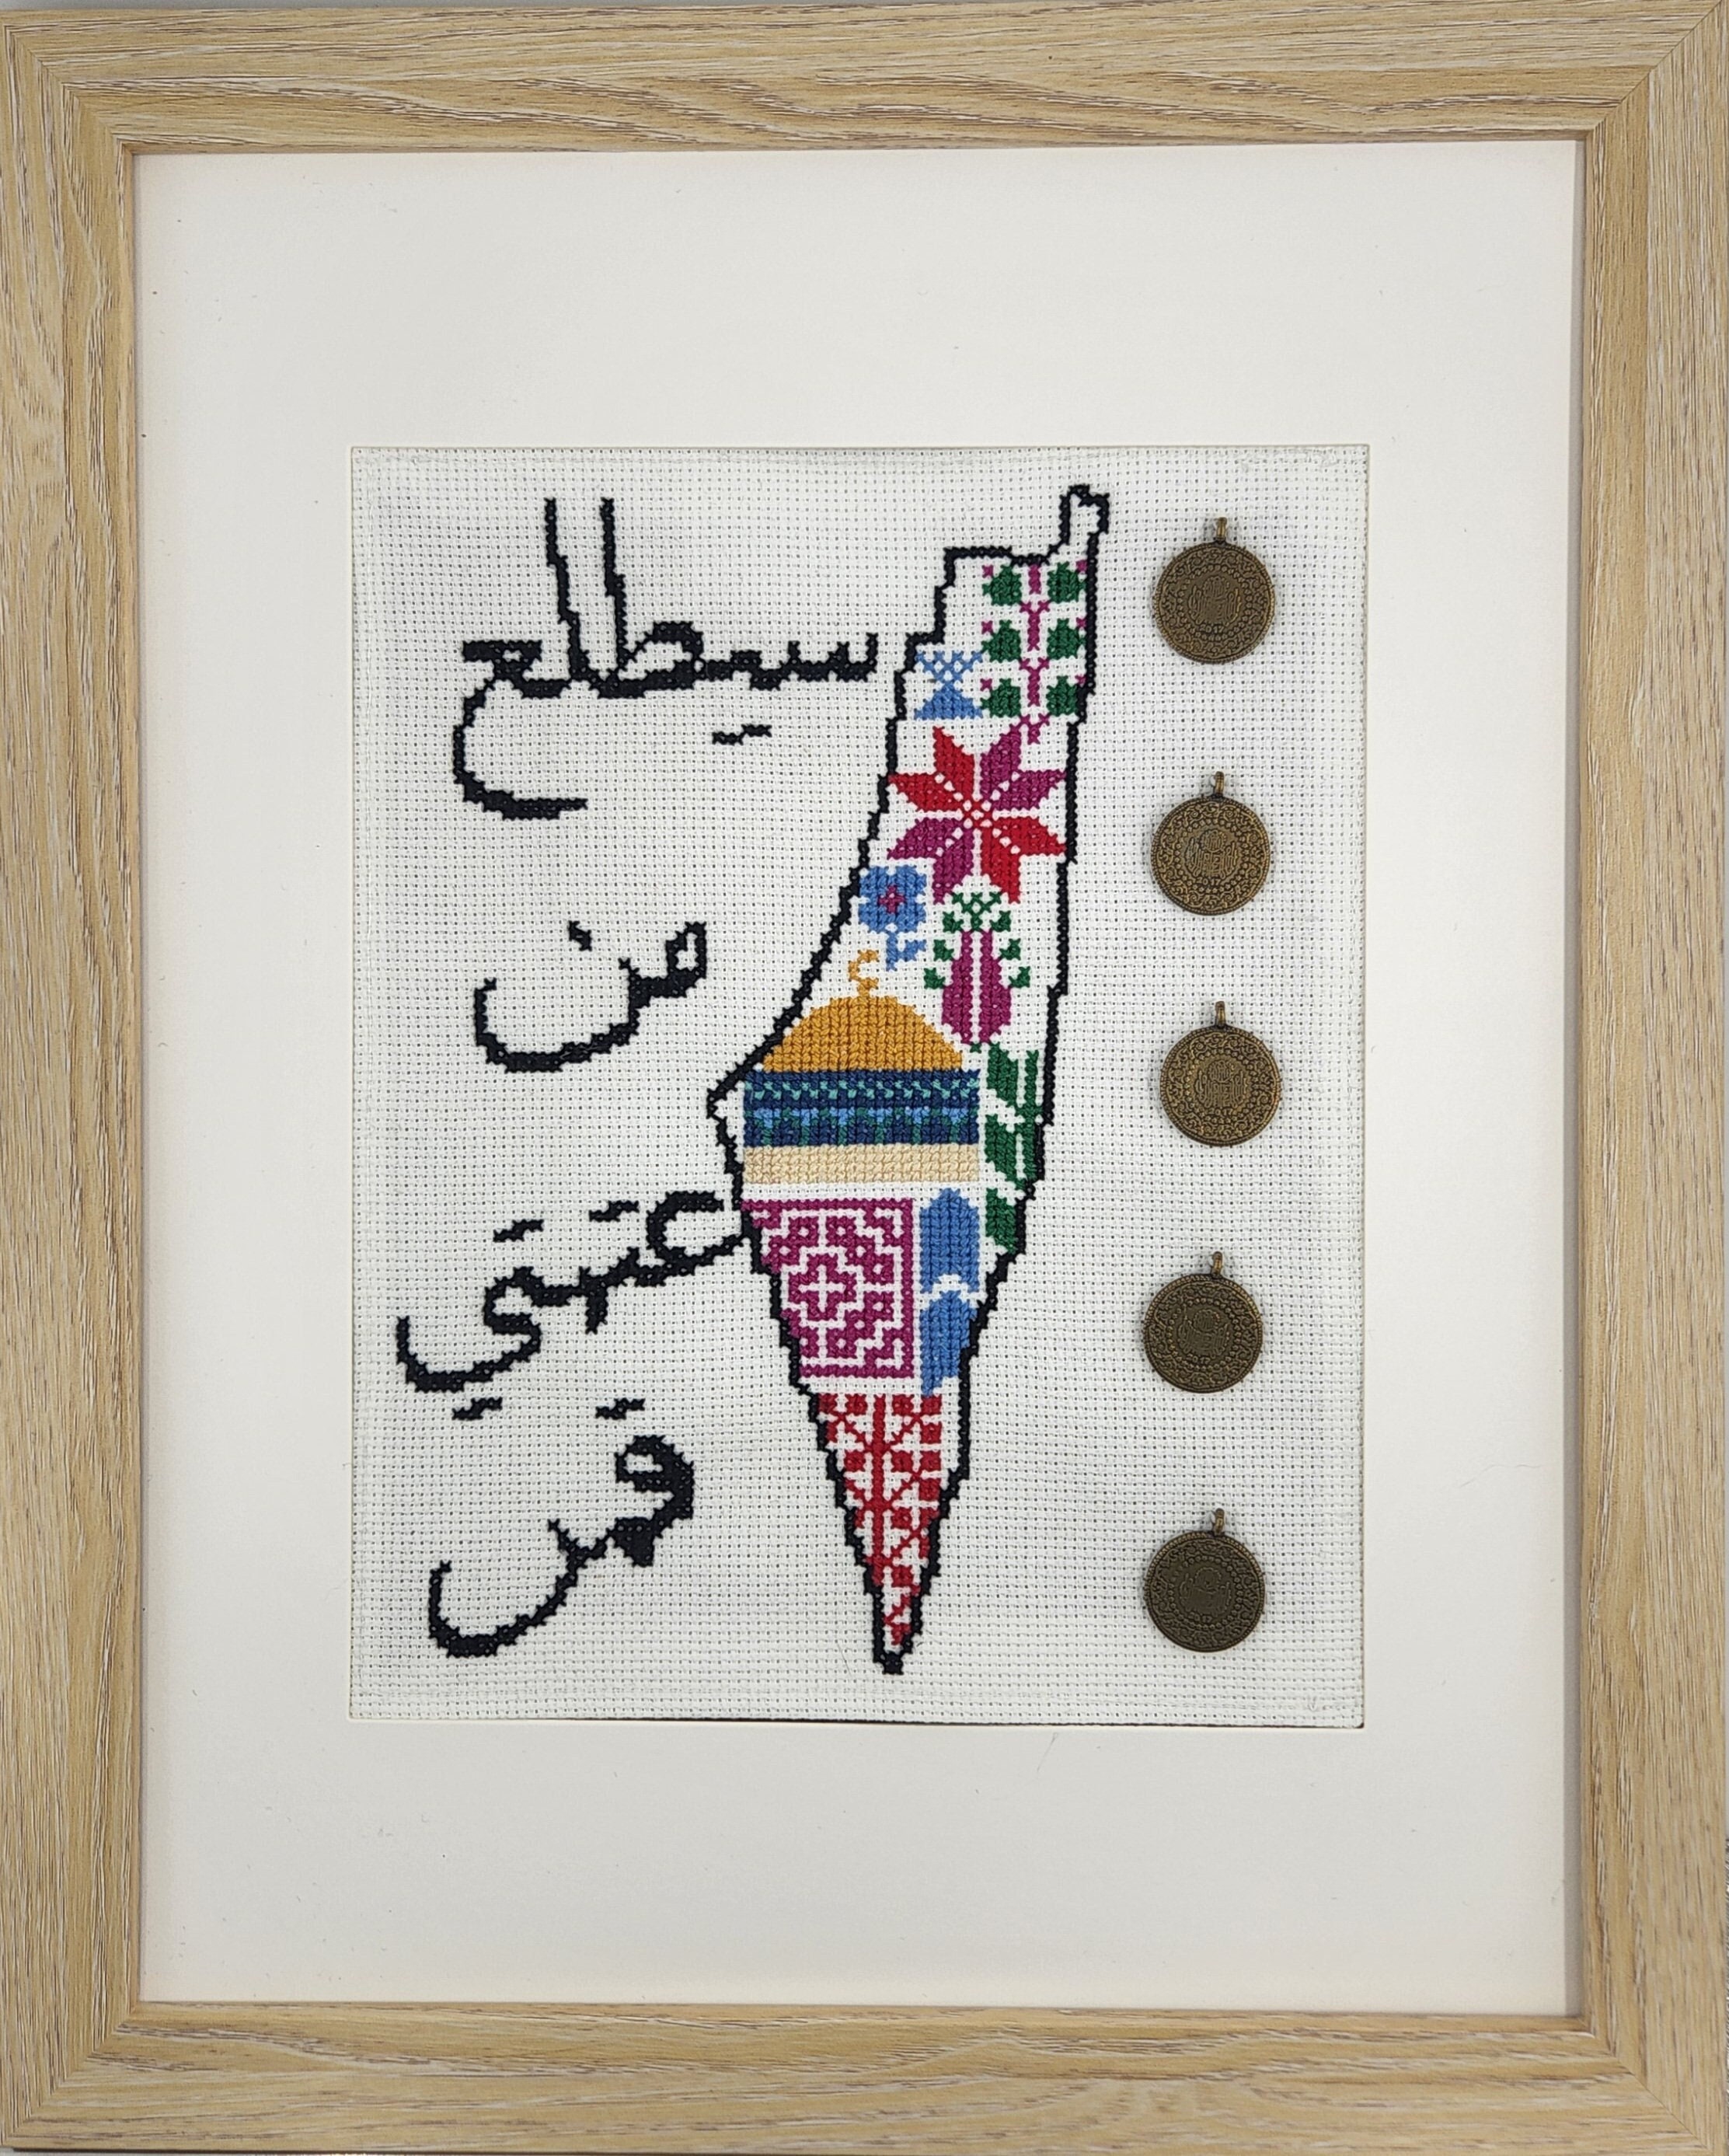 سيطلع
من
عتمتي
قمر